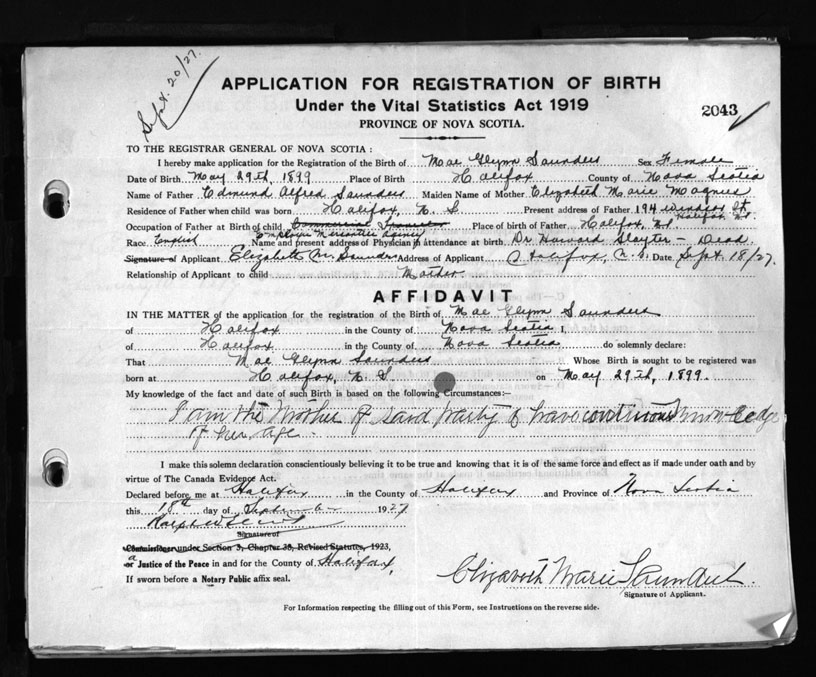 Sept. 20/27.
APPLICATION FOR REGISTRATION OF BIRTH
Under the Vital Statistics Act 1919
2043
PROVINCE OF NOVA SCOTIA.
TO THE REGISTRAR GENERAL OF NOVA SCOTIA :
I hereby make application for the Registration of the Birth of Mae Glynn Saunders Sex Female
Date of Birth May 29th, 1899 Place of Birth Halifax County of Nova Scotia
Name of Father Edmund Alfred Saunders Maiden Name of Mother Elizabeth Marie Magnus
Residence of Father when child was born Halifax, N. S Present address of Father 194 Windsor St.
Halifax N.S.
Occupation of Father at Birth of child Commercial Place of birth of Father Halifax, N.S.
Employee Mercantile Agency
Race English Name and present address of Physician in attendance at birth Dr Howard Slayter - Dead.
Signature of Applicant Elizabeth M. Saunders Address of Applicant Halifax, N. S. Date Sept. 18/27.
Relationship of Applicant to child Mother
AFFIDAVIT
IN THE MATTER of the application for the registration of the Birth of Mae Glynn Saunders
of Halifax in the County of Nova Scotia I,
of Halifax in the County of Nova Scotia do solemnly declare:
That Mae Glynn Saunders Whose Birth is sought to be registered was
born at Halifax, N. S on May 29th, 1899.
My knowledge of the fact and date of such Birth is based on the following Circumstances:—
I am the Mother of said party & have continuous knowledge
of her age.
I make this solemn declaration conscientiously believing it to be true and knowing that it is of the same force and effect as if made under oath and by
virtue of The Canada Evidence Act.
Declared before me at Halifax in the County of Halifax and Province of Nova Scotia
this 18th day of September 1927
Signature of
Commissioner under Section 3, Chapter 38, Revised Statutes, 1923,
a
or Justice of the Peace in and for the County of Halifax,
If sworn before a Notary Public affix seal.
Elizabeth Marie Saunders
Signature of Applicant.
For Information respecting the filling out of this Form, see Instructions on the reverse side.